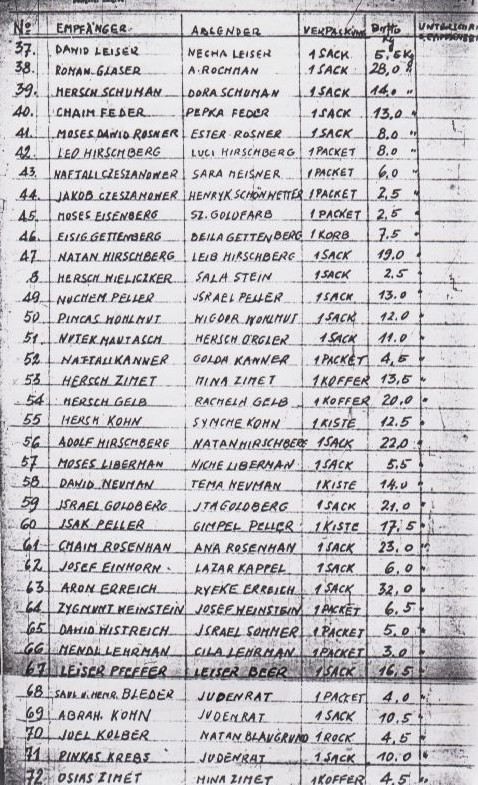 No EMPFÄNGER. ABLENDER VERPACKUNG Kg
37. DAWID LEISER NECHA LEISER 1 SACK 5.5 Kg
38. ROMAN GLASER A. ROCHMAN 1 SACK 28,0 "
39. HERSCH SCHUMAN DORA SCHUMAN 1 SACK 14.0 "
40. CHAIM FEDER PEPKA FEDER 1 SACK 13,0 "
41. MOSES DAWID ROSNER ESTER ROSNER 1 SACK 8.0 "
42. LEO HIRSCHBERG LUCI HIRSCHBERG 1 PACKET 8.0 "
43. NAFTALI CZESZANOWER SARA MEISNER 1 PACKET 6,0 "
44. JAKOB CZESZANOWER HENRYK SCHÖNWETTER 1 PACKET 2,5 "
45. MOSES EISENBERG SZ. GOLDFARB 1 PACKET 2,5 "
46. EISIG GETTENBERG BEILA GETTENBERG 1 KORB 7.5 "
47 NATAN HIRSCHBERG LEIB HIRSCHBERG 1 SACK 19,0 "
8 HERSCH WIELICZKER SALA STEIN 1 SACK 2.5 "
49 NUCHEM PELLER JSRAEL PELLER 1 SACK 13.0 "
50 PINCAS WOHLMUT WIGDOR WOHLMUT 1 SACK 12.0 "
51. NUTEK MAUTASCH HERSCH ORGLER 1 SACK 11.0 "
52 NAFTALI KANNER GOLDA KANNER 1 PACKET 4,5 "
53 HERSCH ZIMET MINA ZIMET 1 KOFFER 13,5 "
54 HERSCH GELB RACHELA GELB 1 KOFFER 20,0 "
55 HERSH KOHN SYNCHE KOHN 1 KISTE 12.5 "
56 ADOLF HIRSCHBERG NATAN HIRSCHBERG 1 SACK 22,0 "
57 MOSES LIBERMAN NICHE LIBERMAN 1 SACK 5.5 "
58 DAWID NEUMAN TEMA NEUMAN 1 KISTE 14.0 "
59 JSRAEL GOLDBERG JTA GOLDBERG 1 SACK 21.0 "
60 JSAK PELLER GIMPEL PELLER 1 KISTE 17,5 "
61 CHAIM ROSENHAN ANA ROSENHAN 1 SACK 23.0 "
62 JOSEF EINHORN LAZAR KAPPEL 1 SACK 6.0 "
63 ARON ERREICH RYFKE ERREICH 1 SACK 32,0 "
64 ZYGMUNT WEINSTEIN JOSEF WEINSTEIN 1 PACKET 6.5 "
65 DAWID WISTREICH JSRAEL SOMMER 1 PACKET 5.0 "
66 MENDL LEHRMAN CILA LEHRMAN 1 PACKET 3.0 "
67 LEISER PFEFFER LEISER BEER 1 SACK 16,5 "
68 SAUL U. HENR. BLEDER JUDENRAT 1 PACKET 4.0 "
69 ABRAH. KOHN JUDENRAT 1 SACK 10.5 "
70 JOEL KOLBER NATAN BLAUGRUND 1 ROCK 4.5 "
71 PINKAS KREBS JUDENRAT 1 SACK 10.0 "
72 OSIAS ZIMET MINA ZIMET 1 KOFFER 4.5 "